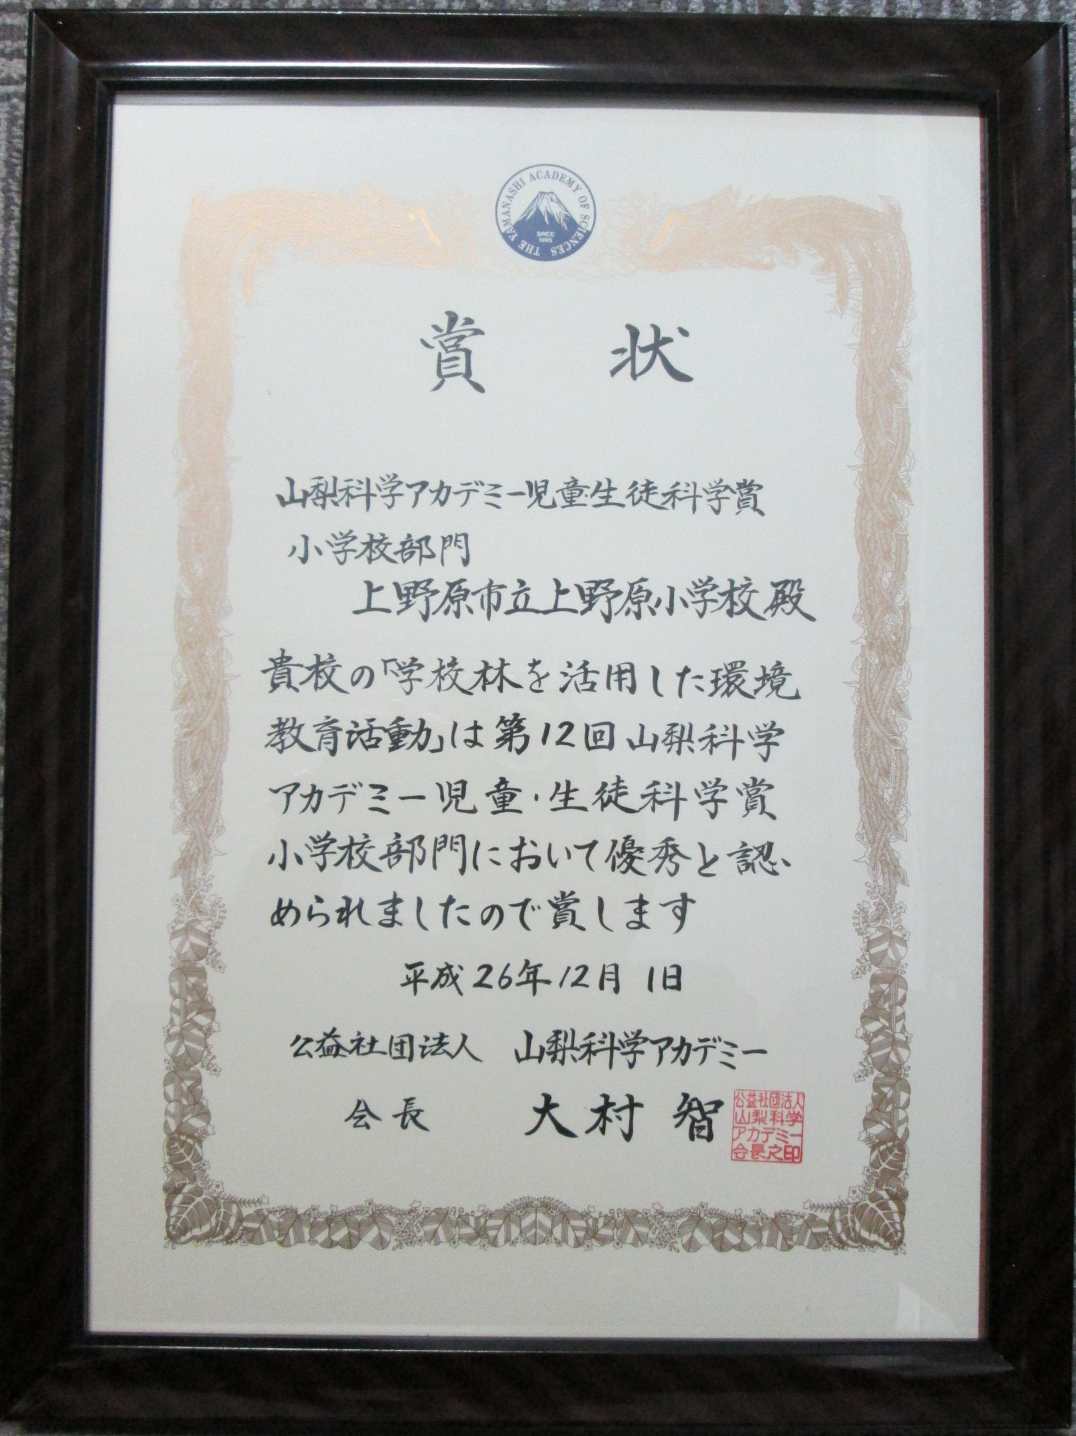 THE YAMANASHI ACADEMY OF SCIENCES
SINCE
1995
賞 状
山梨科学アカデミー児童・生徒科学賞
小学校部門
上野原市立上野原小学校 殿
貴校の「学校林を活用した環境
教育活動」は第12回山梨科学
アカデミー児童・生徒科学賞
小学校部門において優秀と認
められましたので賞します
平成26年12月 1日
公益社団法人 山梨科学アカデミー
会長 大村 智
公益社団法人
山梨科学
アカデミー
会長之印